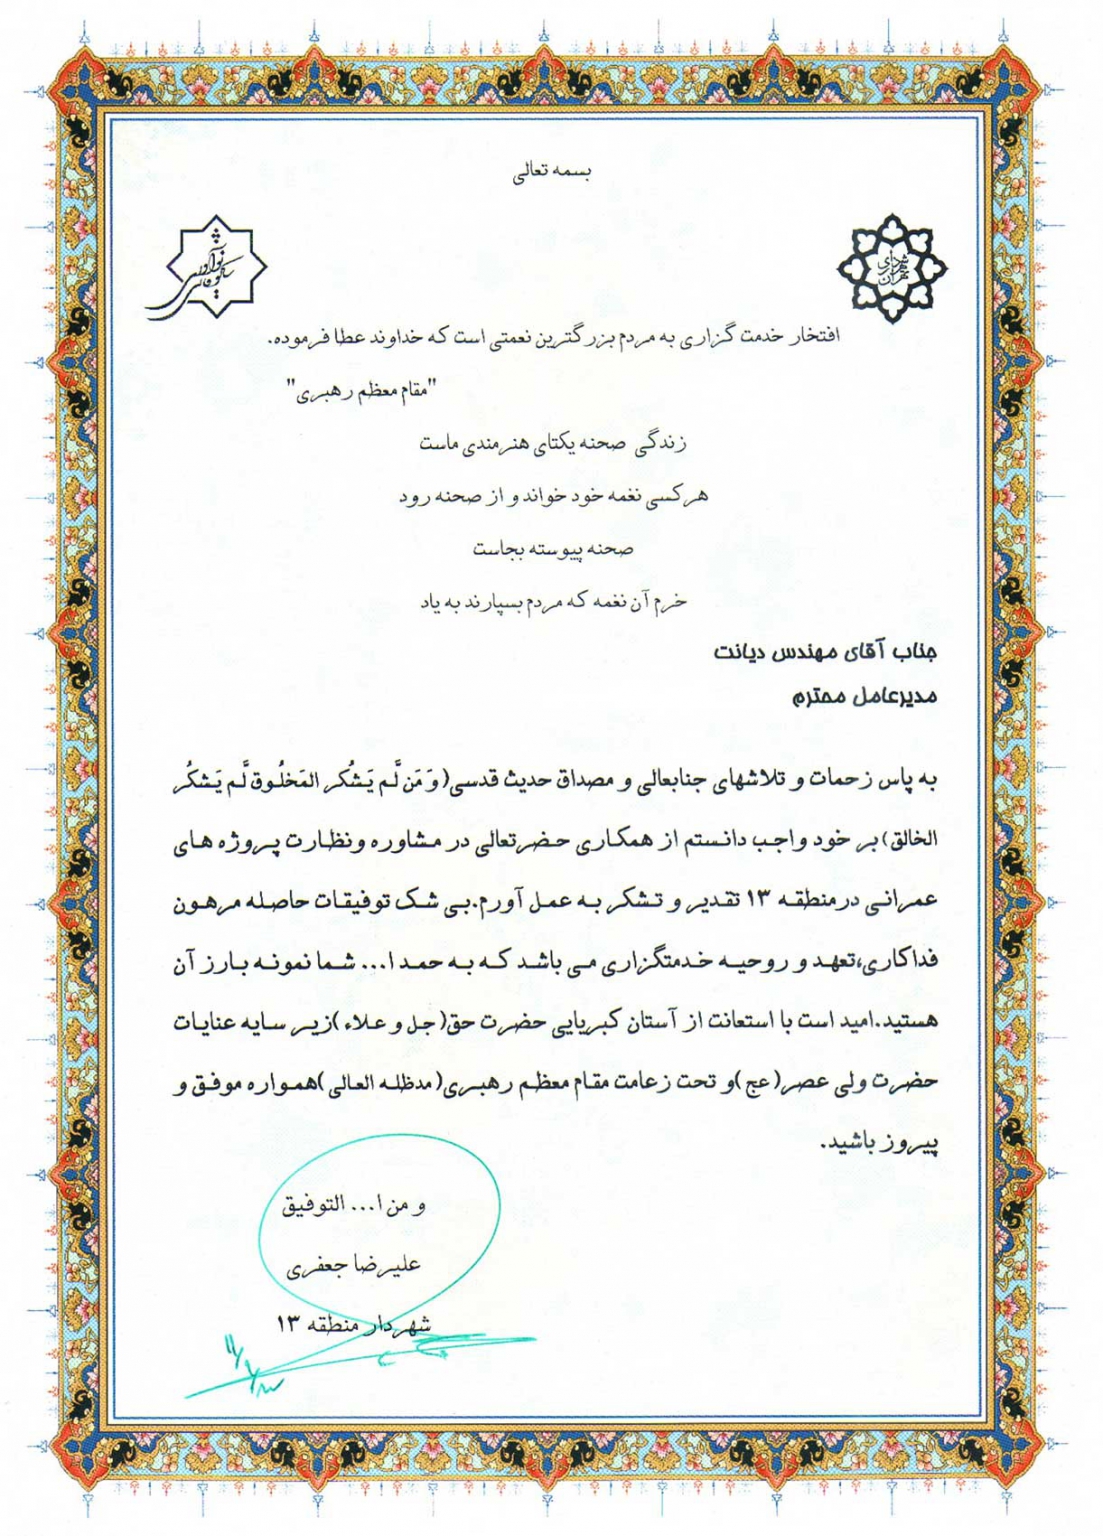 بسمه تعالی
شهرداری تهران
نوآوری شکوفایی
افتخار خدمت گزاری به مردم بزرگترین نعمتی است که خداوند عطا فرموده.
"مقام معظم رهبری"
زندگی صحنه یکتای هنرمندی ماست
هرکسی نغمه خود خواند و از صحنه رود
صحنه پیوسته بجاست
خرم آن نغمه که مردم بسپارند به یاد
جناب آقای مهندس دیانت
مدیرعامل محترم
به پاس زحمات و تلاشهای جنابعالی و مصداق حدیث قدسی(وَ مَن لَّم یَشُکر المَخلُوق لَّم یَشکُر
الخالق)بر خود واجب دانستم از همکاری حضرتعالی در مشاوره ونظارت پروژه های
عمرانی درمنطقه ۱۳ تقدیر و تشکر به عمل آورم.بی شک توفیقات حاصله مرهون
فداکاری،تعهد و روحیه خدمتگزاری می باشد که به حمد ا... شما نمونه بارز آن
هستید.امید است با استعانت از آستان کبریایی حضرت حق(جل و علاء)زیر سایه عنایات
حضرت ولی عصر(عج)و تحت زعامت مقام معظم رهبری(مدظله العالی)همواره موفق و
پیروز باشید.
و من ا... التوفیق
علیرضا جعفری
شهردار منطقه ۱۳